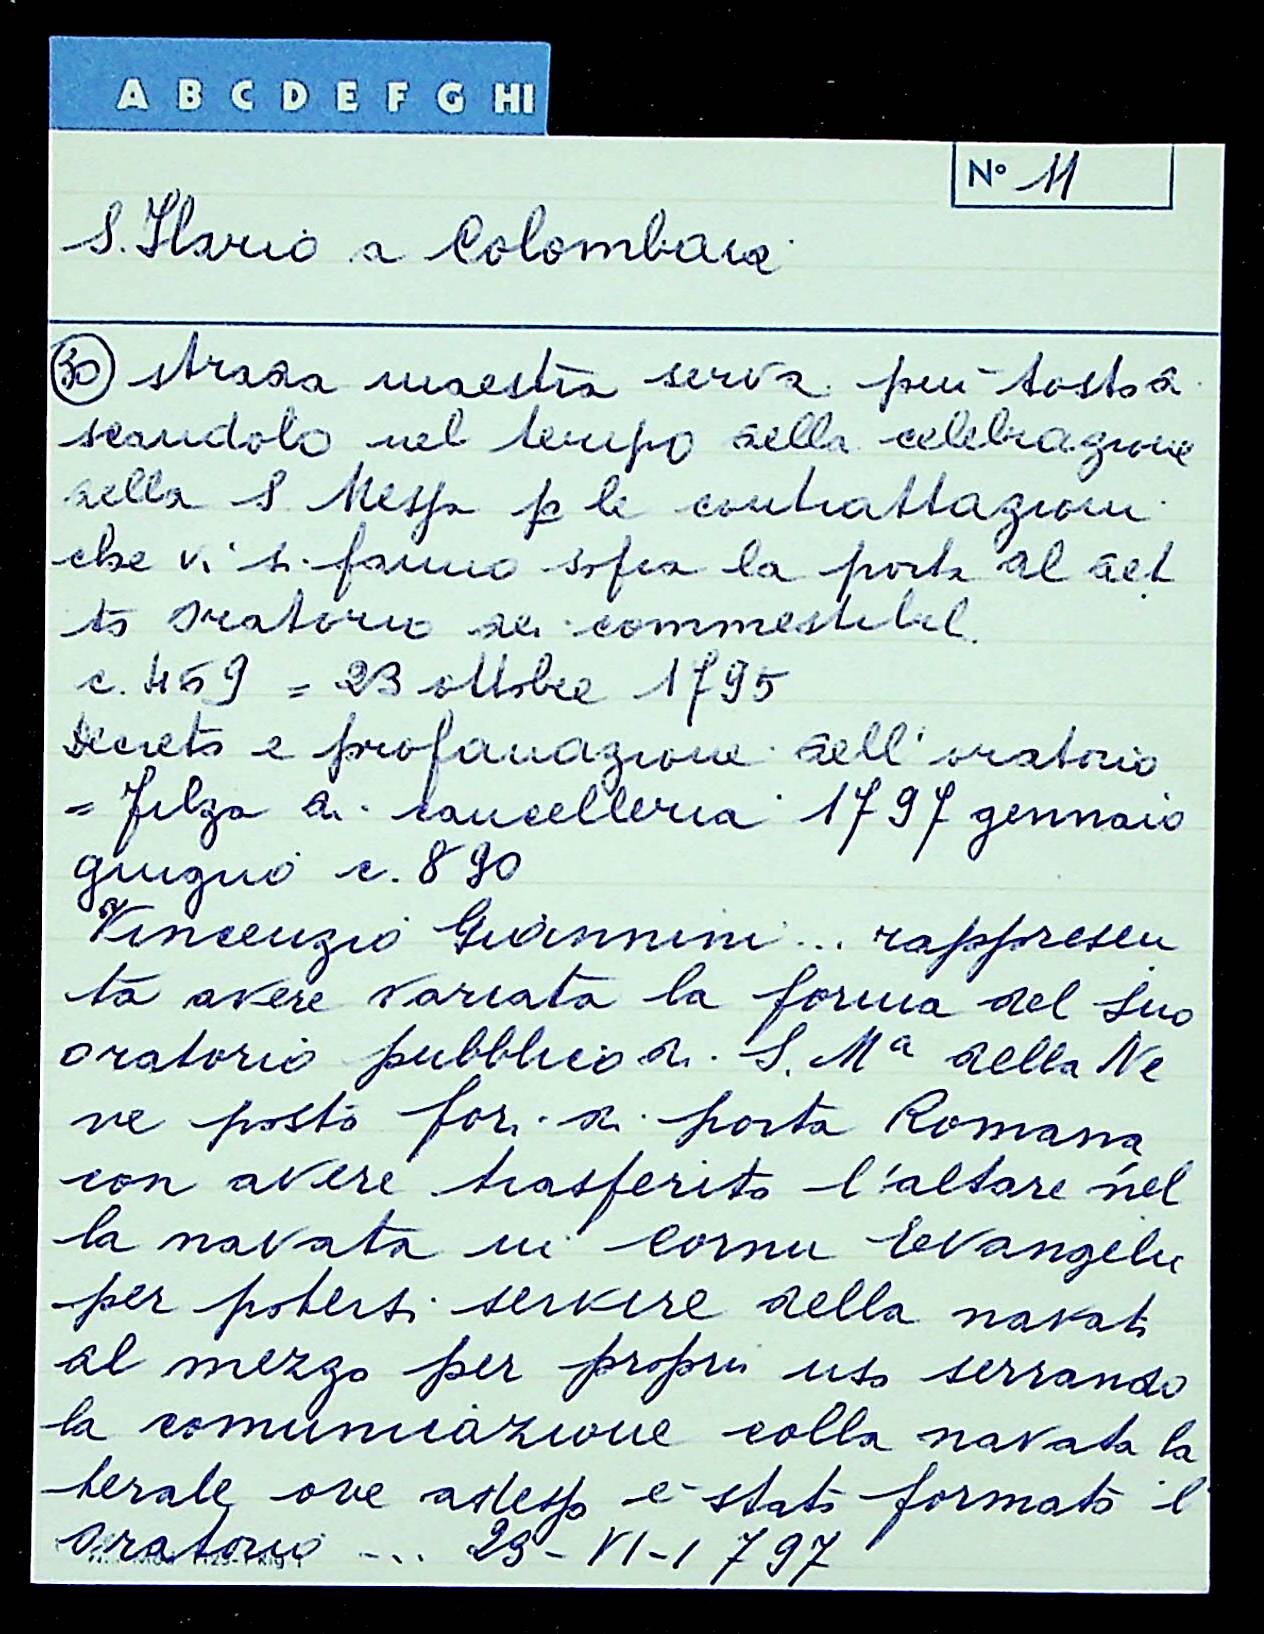 A B C D E F G HI
N° 11
S. Ilario a Colombaia
30 strada maestra serva piu tosto a
scandolo nel tempo della celebrazione
della S Messa p le contrattazioni
che vi si fanno sopra la porta al det
to oratorio dei commestibil.
c. 459 = 23 ottobre 1795
Decreto e profanazione dell'oratorio
= filza di cancelleria 1797 gennaio
giugno c. 890
Vincenzio Giannini ... rappresen
ta avere variata la forma del suo
oratorio pubblico di S. Mª della Ne
ve posto fori di porta Romana
con avere trasferito l'altare nel
la navata in Cornu Evangelii
per potersi servire della navata
al mezzo per propri uso serrando
la comunicazione colla navata la
terale ove adesso è stato formato l'
oratorio ... 23-VI-1797